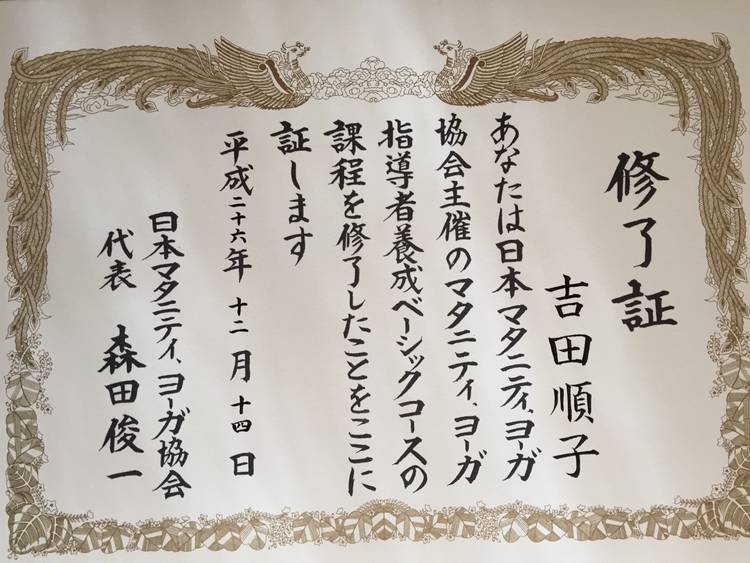 修了証
吉田順子
あなたは日本マタニティ、ヨーガ
協会主催のマタニティ、ヨーガ
指導者養成ベーシックコースの
課程を修了したことをここに
証します
平成二十六年 十二月 十四日
日本マタニティ、ヨーガ協会
代表 森田俊一